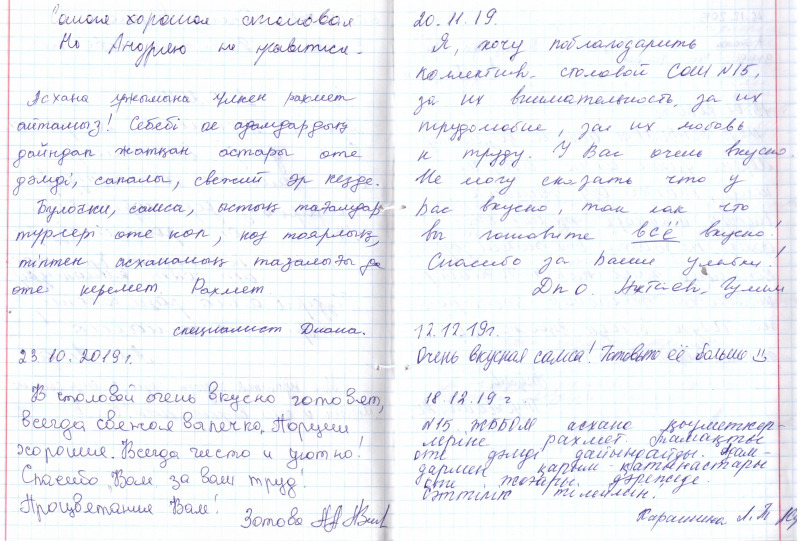 Самая хорошая столовая
Но Андрею не нравится.
Асхана ұжымына үлкен рахмет
айтамыз! Себебі ас адамдардың
дайындап жатқан астары өте
дәмді, сапалы, свежий әр кезде.
Булочки, самса, астың тағамдар
түрлері өте көп, көз тоярлық,
тіптен асхананың тазалығы да
өте керемет. Рахмет
специалист Диана.
23.10.2019г.
В столовой очень вкусно готовят,
всегда свежая выпечка. Порции
хорошие. Всегда чисто и уютно!
Спасибо Вам за ваш труд!
Процветания Вам!
Зотова
20.11.19.
Я, хочу поблагодарить
коллектив столовой СОШ N15,
за их внимательность, за их
трудолюбие, за их любовь
к труду. У Вас очень вкусно.
Не могу сказать что у
Вас вкусно, так как что
вы готовите всё вкусно!
Спасибо за Ваши улыбки!
Д.п.о.
12.12.19г.
Очень вкусная самса! Готовьте её больше
18.12.19г.
N15 ЖББОМ асхана қызметкер-
леріне рахмет. Тамақты
өте дәмді дайындайды. Адам-
дармен қарым-қатынастары
өте жоғары дәрежеде.
Сәттілік тілеймін.
Карашина Л.Т